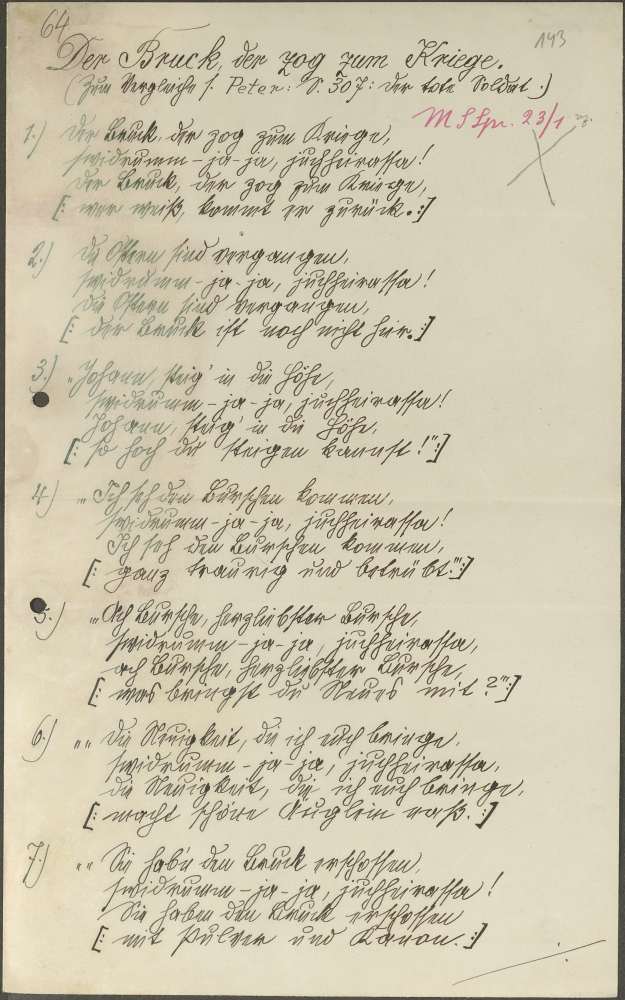 64
193
Der Bruck, der zog zum Kriege.
(Zum Vergleiche s. Peter: S. 307: der tote Soldat.)
M S Spr. 23/1
1.) Der Bruck, der zog zum Kriege,
swidrumm-ja-ja, juchheirassa!
Der Bruck, der zog zum Kriege,
[: wer weiß, kommt er zurück. :]
2.) Die Ostern sind vergangen,
swidrumm-ja-ja, juchheirassa!
Die Ostern sind vergangen,
[: der Bruck ist noch nicht hier. :]
3.) „Johann, steig' in die Höhe,
swidrumm-ja-ja, juchheirassa!
Johann, steig' in die Höhe,
[: so hoch du steigen kannst!" :]
4.) „Ich seh den Burschen kommen,
swidrumm-ja-ja, juchheirassa!
Ich seh den Burschen kommen,
[: ganz traurig und betrübt." :]
5.) „Ach Bursche, herzliebster Bursche,
swidrumm-ja-ja, juchheirassa,
ach Bursche, herzliebster Bursche,
[: was bringst du Neues mit?" :]
6.) „„ Die Neuigkeit, die ich euch bringe,
swidrumm-ja-ja, juchheirassa,
die Neuigkeit, die ich euch bringe,
[: macht schöne Äuglein naß. :]
7.) „„ Sie hab'n den Bruck erschossen,
swidrumm-ja-ja, juchheirassa!
Sie haben den Bruck erschossen
[: mit Pulver und Kanon. :]